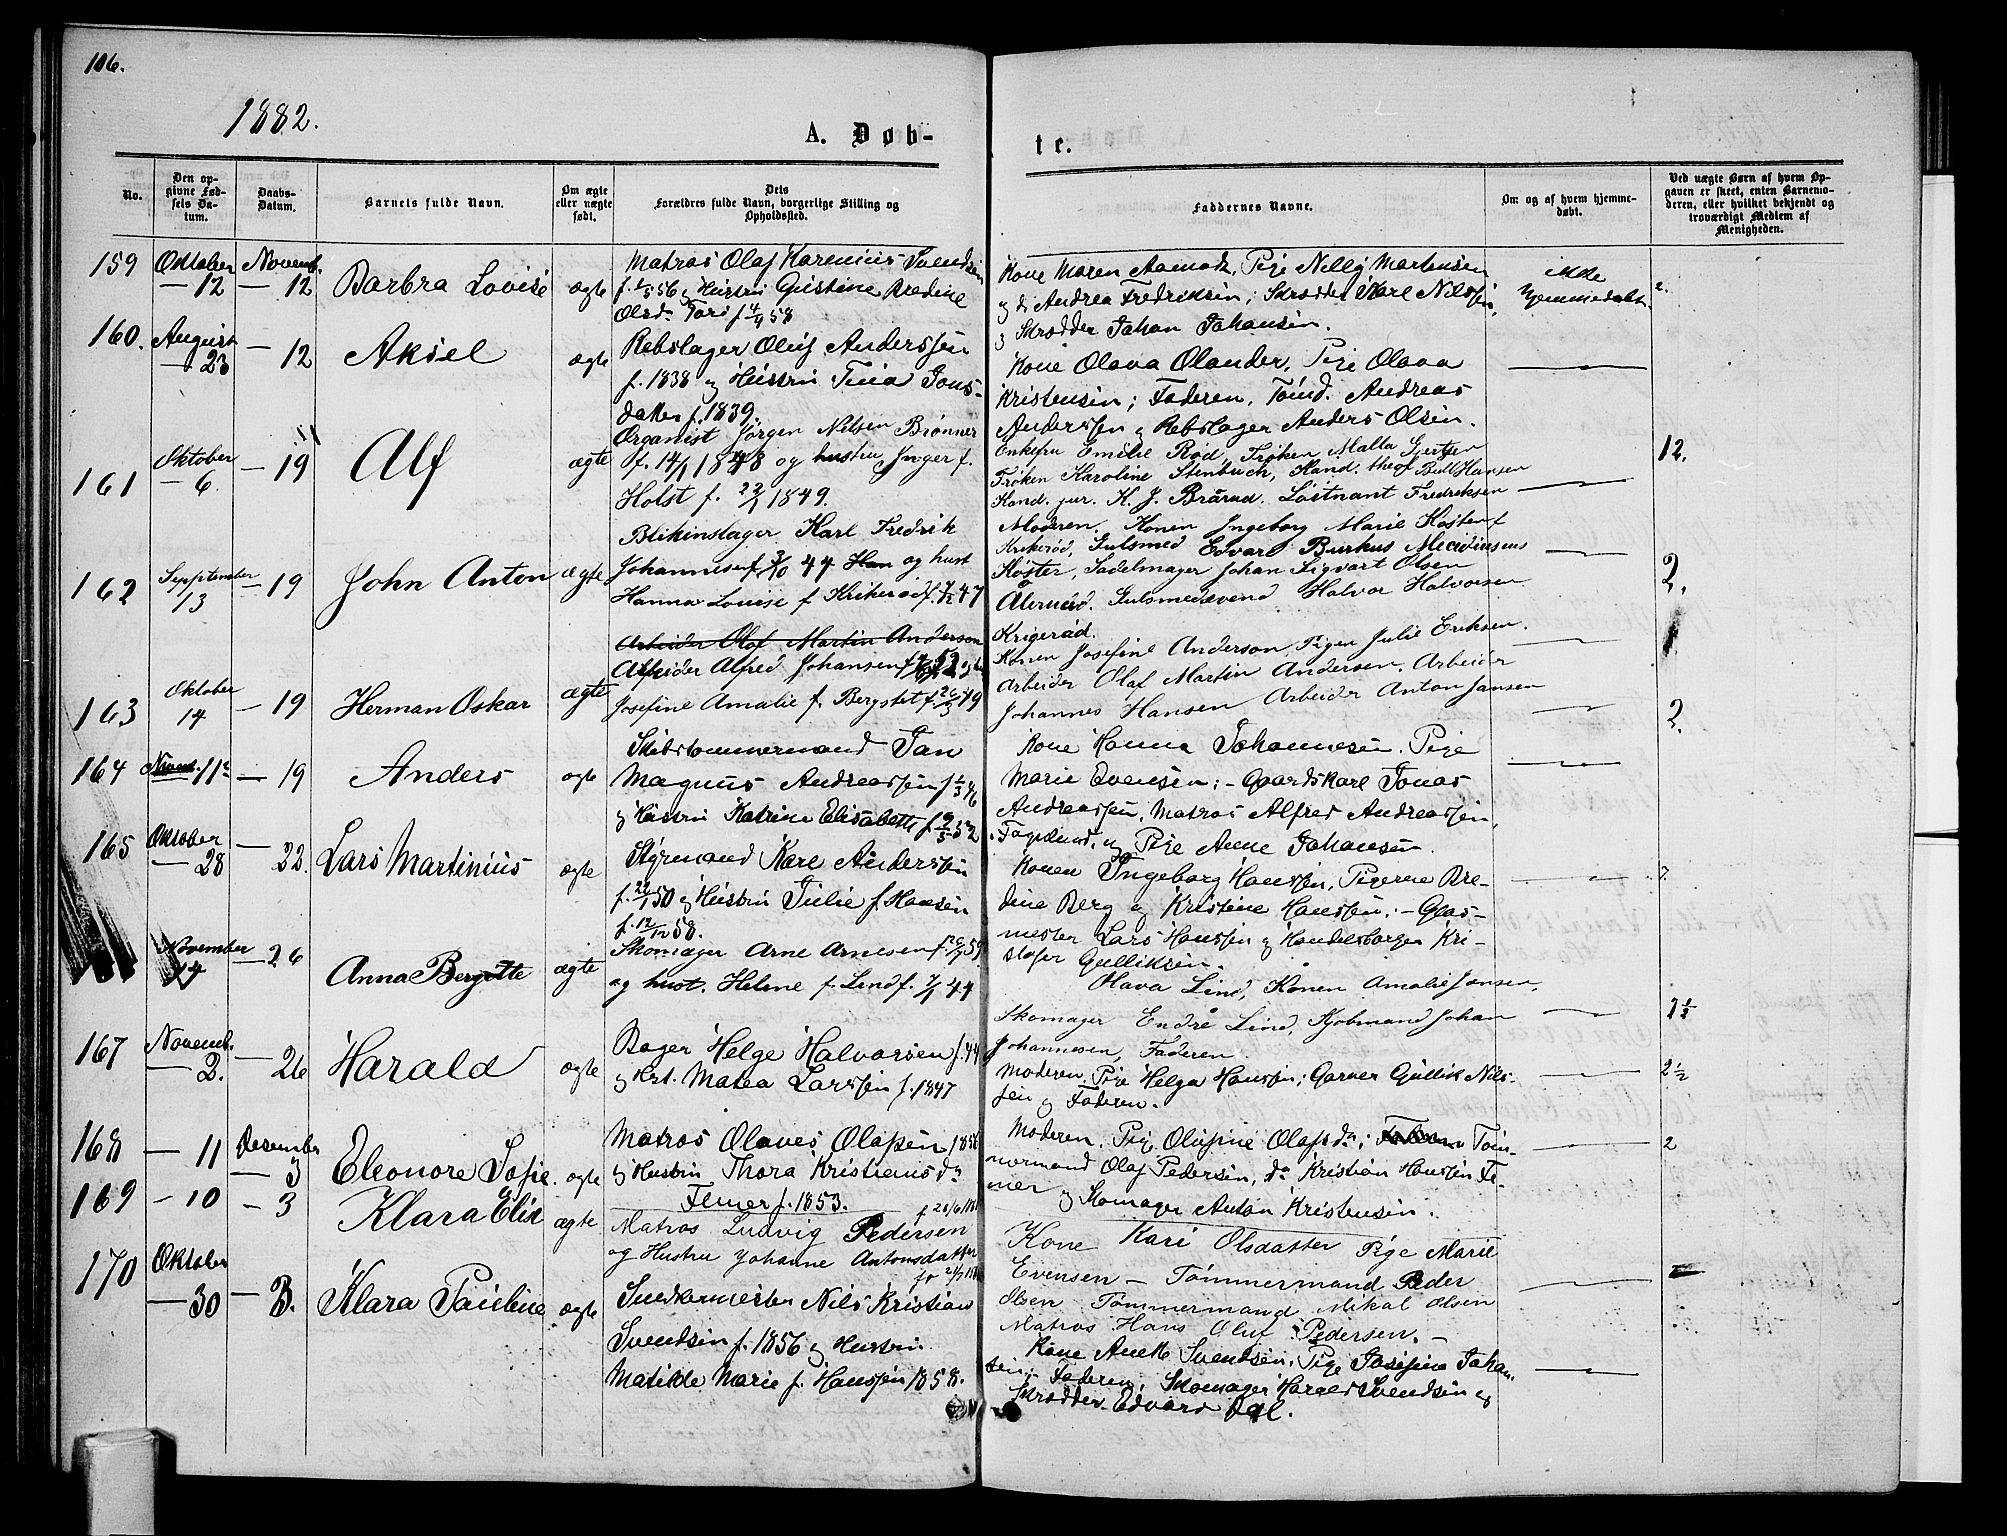 106.
1882.
A. Døb-
te.
No.
Den op-
givne Fød-
sels Da-
tum.
Daabs-
Datum.
Barnets fulde Navn.
Om ægte
eller uægte
født.
Dets
Forældres fulde Navn, borgerlige Stilling og
Opholdssted.
Faddernes Navne.
Om og af hvem hjemme-
døbt.
Ved uægte Børn af hvem Op-
gaven er skeet, enten Barnemo-
deren, eller hvilket bekjendt og
troværdigt Medlem af
Menigheden.
159 Oktober 12 Novemb. 12 Barbra Lovise ægte
Matros Olaf Karenius Svendsen
og Hustru Gustine Bredine
Olsd. f. 58
Kone Maren Aamodt, Pige Nelly Martensen
og do Andrea Fredriksen; Skrædder Karl Nilssen,
og Skrædder Johan Johansen.
ikke
hjemmedøbt
160. August 23 — 12 Aksel ægte
Rebslager Oluf Anderssen
f. 1838 og Hustru Tina Jons-
datter f. 1839.
Kone Olava Olander, Pige Olava
Kristensen; Faderen, Tømd. Andreas
Anderssen og Rebslager Anders Olsen.
161 Oktober 6 — 19 Alf ægte
Organist Jörgen Nilsen Brønner
f. 14/1 1848 og hustru Inger f.
Holst f. 22/1 1849.
Enkefru Emilie Rød, Frøken Malla Gjertsen
Frøken Karoline Stenbuch, Kand. theol Bull Hansen
Kand. jur. K. J. Brårud. Löitnant Fredriksen
12.
162 Sepptember 13 — 19 John Anton ægte
Blikinslager Karl Fredrik
Johannesen f. 3/10 44 og hust
Hanna Louise f. Krikerød f. 47
Moderen. Konen Ingeborg Marie Køster f
Krikerød, Gulsmed Edvard
Köster, Sadelmager Johan Sigvart Olsen
Gulsmedsvend Halvor Halvorsen
Krigerød.
2.
163 Oktober 14 — 19 Herman Oskar ægte
Arbeider Olaf Martin Anderson
Arbeider Alfred Johansen
Josefine Amalie f. Bergstet f. 49
Konen Josefine Anderson, Pigen Julie Eriksen.
Arbeider Olaf Martin Andersen, Arbeider
Johannes Hansen Arbeider Anton Jansen
2.
164 Novemb. 11 — 19 Anders ægte
Skibstømmermand Jan
Magnus Andreassen f. 46
og Hustru Katrine Elisabette f. 9/3 52
Kone Hanna Johannesen, Pige
Marie Evensen; – Gaardskarl Jonas
Andreassen, Matros Alfred Andreassen,
og Pige Anne Johansen.
165 Oktober 28 — 22. Lars Martinius ægte
Styrmand Karl Anderssen
f. 50 og Hustru Julie f. Hansen
f. 12/12 58.
Konen Ingeborg Hanssen, Pigerne Bre-
dine Berg og Kristine Hanssen; – Glas-
mester Lars Hanssen og Handelsborger Kri-
stofer Gulliksen.
November 14 — 26 Anna Bergitte ægte
Skomager Arne Arnesen f. 59
og hust. Helene f. Lind f. 7/1 44
Olava Lind, Konen Amalie Jansen,
Skomager Endre Lind, Kjøbmand Johan
Johannesen, Faderen.
167 Novemb. 2. — 26 Harald ægte
Bager Helge Halvorsen f. 44
og Hst. Matea Larssen f. 1847
Moderen, Pige Helga Hanssen; Garver Gullik Nils-
sen og Faderen.
2½
168 — 11 Desember 3 Eleonore Sofie. ægte
Matros Olaves Olafsen 1856
og Hustru Thora Kristiansda
Femer f. 1853.
Moderen, Pige Olufine Olafsda; Faderen Töm-
mermand Olaf Pedersen, do Kristian Hanssen Fe-
mer og Skomager Anton Kristensen.
2
169 — 10 — 3 Klara Elise ægte
Matros Ludvig Pedersen
og Hustru Johanne Antonsdatter
Kone Kari Olsdatter Pige Marie
Evensen — Tömmermand Peder
Olsen Tømmermand Mikal Olsen
Matros Hans Oluf Pedersen. –
170 Oktober 30 — 3. Klara Pauline ægte
Snedkermester Nils Kristian
Svendsen f. 1856 og Hustru
Matilde Marie f. Hanssen 1858.
Kone Anette Svendsen, Pige Josefine Johan-
sen; Faderen, Skomager Harald Svendsen og
Skrædder Edvard Dal.